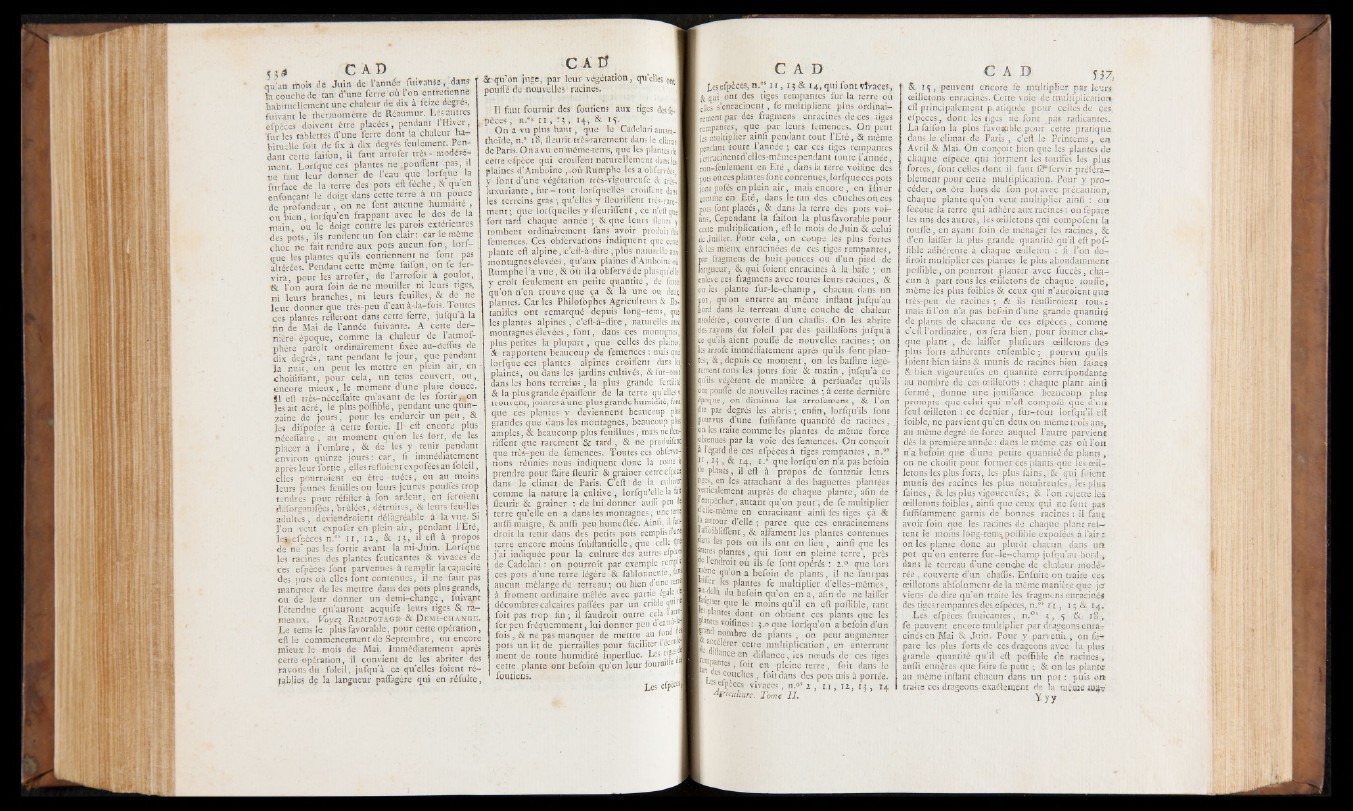 536 CAD
qu'au mois de Juin de l'année suivante, dans
la couche de tan d'une serre où l'on entretienne
habituellement une chaleur de dix à seize degrés,
suivant le thermomètre de Réaumur. Les autres
espèces doivent être placées, pendant l'Hiver,
sur les tablettes d'une serre dont la chaleur ha-
bituelle soit de six à dix degrés seulement. Pen-
dant cette saison, il faut arroser très-modéré-
ment. Lorsque ces plantes ne poussent pas, il
ne faut leur donner de l'eau que lorsque la
surface de la terre des pots est sèche, & qu'en
enfonçant le doigt dans cette terre à un pouce
de profondeur, on ne sent aucune humidité,
ou bien, lorsqu'en frappant avec le dos de la
main, ou le doigt contre les parois extérieures
des pots, ils rendent un son clair: car le même
choc ne fait rendre aux pots aucun son, lorf-
que les plantes qu'ils contiennent ne sont pas
altérées. Pendant cette même saison, on se ser-
vira, pour les arroser, de l'arrosoir à goulot,
& l'on aura soin de ne mouiller ni leurs tiges,
ni leurs branches, ni leurs feuilles, & de ne
leur donner que très-peu d'eau à-la-fois. Toutes
ces plantes resteront dans cette serre, jusqu'à la
fin de Mai de l'année suivante. A cette der-
nière époque, comme la chaleur de l'atmos-
phère paroît ordinairement fixée au-dessus de
dix degrés, tant pendant le jour, que pendant
la nuit, on peut les mettre en plein air, en
choisissant, pour cela, un tems couvert, ou,
encore mieux, le moment d'une pluie douce.
Il est très-nécessaire qu'avant de les sortir, on
les ait aéré, le plus possible, pendant une quin-
zaine de jours, pour les endurcir un peu, &
les disposer à cette sortie. Il est encore plus
nécessaire, au moment qu'on les sort, de les
placer à l'ombre, & de les y tenir pendant
environ quinze jours: car, si immédiatement
après leur sortie, elles restoient exposées au soleil,
elles pourroient en être tuées, ou au moins
leurs jeunes feuilles ou leurs jeunes pousses trop
tendres pour résister à son ardeur, en seroient
désorganisées, brûlées, détruites, & leurs feuilles
adultes, deviendroient désagréable à la vue. Si
l'on veut exposer en plein air, pendant l'Été,
les espèces n.os 11, 12, & 13, il est à propos
de ne pas les sortir avant la mi-Juin. Lorsque
les racines des plantes fruticantes & vivaces de
ces espèces sont parvenues à remplir la capacité
des pots où elles sont contenues, il ne faut pas
manquer de les mettre dans des pots plus grands,
ou de leur donner un demi-change, suivant
l'étendue qu'auront acquise leurs tiges & ra-
meaux. Voyez REMPOTAGE & DEMI-CHANGE.
Le tems le plus favorable, pour cette opération,
est le commencement de Septembre, ou encore
mieux le mois de Mai. Immédiatement après
cette opération, il convient de les abriter des
rayons du soleil, jusqu'à ce qu'elles soient ré-
tablies de la langueur passagère qui en résulte,
CAD
& qu'on juge, par leur végétation, qu'elles ont
poussé de nouvelles racines.
Il faut fournir des soutiens aux tiges des es-
pèces, n.os 11, 13, 14, & 15.
On a vu plus haut, que le Cadelari amaran-
thoïde, n.° 18, fleurit très-rarement dans le climat
de Paris. On a vu en même-tems, que les plantes de
cette espèce qui croissent naturellement dans les
plaines d'Amboine, où Rumphe les a observées,
y sont d'une végétation très-vigoureuse & très-
luxuriante, sur-tout lorsqu'elles croissent dans
les terreins gras; qu'elles y fleurissent très-rare-
ment; que lorsqu'elles y fleurissent, ce n'est que
fort tard chaque année; & que leurs fleurs y
tombent ordinairement sans avoir produit de
semences. Ces observations indiquent que cette
plante est alpine, c'est-à-dire, plus naturelle aux
montagnes élevées, qu'aux plaines d'Amboine où
Rumphe l'a vue, & où il a observé de plus qu'elle
y croît seulement en petite quantité, de sorte
qu'on n'en trouve que çà & là une ou deux
plantes. Car les Philosophes Agriculteurs & Bo-
tanistes ont remarqué depuis long-tems, que
les plantes alpines, c'est-à-dire, naturelles aux
montagnes élevées, sont, dans ces montagnes,
plus petites la plupart, que celles des plaines,
& rapportent beaucoup de semences: mais que
lorsque ces plantes alpines croissent dans les
plaines, ou dans les jardins cultivés, & sur-tout
dans les bons terreins, la plus grande fertilité
& la plus grande épaisseur de la terre qu'elles y
trouvent, jointes à une plus grande humidité, font
que ces plantes y deviennent beaucoup plus
grandes que dans les montagnes, beaucoup plus
amples, & beaucoup plus feuillues, mais ne fleu-
rissent que rarement & tard, & ne produisent
que très-peu de semences. Toutes ces observa-
nons réunies nous indiquent donc la route à
prendre pour faire fleurir & grainer cette espèce
dans le climat de Paris. C'est de la cultiver
comme la nature la cultive, lorsqu'elle la fait
fleurir & grainer: de lui donner aussi peu de
terre qu'elle en a dans les montagnes, une terre
aussi maigre, & aussi peu humectée. Ainsi, il fau-
droit la tenir dans des petits pots remplis d'une
terre encore moins substantielle, que celle que
j'ai indiquée pour la culture des autres espèces
de Cadelari: on pourroit par exemple remplir
ces pots d'une terre légère & sablonneuse, sans
aucun mélange de terreau; ou bien d'une terre
à froment ordinaire mêlée avec partie égale de
décombres calcaires passées par un crible qui ne
soit pas trop fin; il faudroit outre cela l'arro-
ser peu fréquemment, lui donner peu d'eau à-la-
fois, & ne pas manquer de mettre au fond des
pots un lit de pierrailles pour faciliter l'écoule-
ment de toute humidité superflue. Les tiges de
cette plante ont besoin qu'on leur fournisse des
soutiens.
Les espèces,
CAD
Les espèces, n.os 11, 13 & 14, qui sont vivaces,
& qui ont des tiges rempantes sur la terre où
elles s'enracinent, se multiplient plus ordinai-
rement par des fragmens enracinés de ces tiges
rempantes, que par leurs semences. On peut
les multiplier ainsi pendant tout l'Été, & même
pendant toute l'année; car ces tiges rempantes
s'enracinent d'elles-mêmes pendant toute l'année,
non-seulement en Été, dans la terre voisine des
pots où ces plantes sont contenues, lorsque ces pots
sont posés en plein air, mais encore, en Hiver
comme en Été, dans le tan des couches où ces
pots sont placés, & dans la terre des pots voi-
sins. Cependant la saison la plus favorable pour
cette multiplication, est le mois de Juin & celui
de Juillet. Pour cela, on coupe les plus fortes
& les mieux enracinées de ces tiges rempantes,
par fragmens de huit pouces ou d'un pied de
longueur, & qui soient enracinés à la base; on
enlève ces fragmens avec toutes leurs racines, &
on les plante sur-le-champ, chacun dans un
pot, qu'on enterre au même instant jusqu'au
bord dans le terreau d'une couche de chaleur
modérée, couverte d'un chassis. On les abrite
des rayons du soleil par des paillassons jusqu'à
ce qu'ils aient poussé de nouvelles racines; on
les arrose immédiatement après qu'ils sont plan-
tés; &, depuis ce moment, on les bassine légè-
rement tous les jours soir & matin, jusqu'à ce
qu'ils végètent de manière à persuader qu'ils
ont poussé de nouvelles racines; à cette dernière
époque, on diminue les arrosemens, & l'on
ôte par degrés les abris; enfin, lorsqu'ils sont
pourvus d'une suffisante quantité de racines,
on les traite comme les plantes de même force
obtenues par la voie des semences. On conçoit
à l'égard de ces espèces à tiges rempantes, n.os
11, 13, & 14, 1.° que lorsqu'on n'a pas besoin
de plants, il est à propos de soutenir leurs
tiges, en les attachant à des baguettes plantées
verticalement auprès de chaque plante, afin de
l'empêcher, autant qu'on peut, de se multiplier
d'elle-même en enracinant ainsi ses tiges çà &
là autour d'elle; parce que ces enracinemens
affoiblissent, & affament les plantes contenues
dans les pots où ils ont eu lieu, ainsi que les
autres plantes, qui sont en pleine terre, près
de l'endroit où ils se sont opérés: 2.° que lors
même qu'on a besoin de plants, il ne faut pas
laisser les plantes se multiplier d'elles-mêmes,
au-delà du besoin qu'on en a, afin de ne laisser
que le moins qu'il en est possible, tant
les plantes dont on obtient ces plants que les
plantes voisines: 3.° que lorsqu'on a besoin d'un
grand nombre de plants, on peut augmenter
& accélérer cette multiplication, en enterrant
de distance en distance, les nœuds de ces tiges
rempantes, soit en pleine terre, soit dans le
tan des couches, soit dans des pots mis à portée.
Les espèces vivaces, n.os 2, 11, 12, 13, 14
Agriculture. Tome II.
CAD 537
& 15, peuvent encore se multiplier par leurs
œilletons enracinés. Cette voie de multiplication
est principalement pratiquée pour celles de ces
espèces, dont les tiges ne sont pas radicantes.
La saison la plus favorable pour cette pratique
dans le climat de Paris, c'est le Printems, en
Avril & Mai. On conçoit bien que les plantes de
chaque espèce qui forment les touffes les plus
fortes, sont celles dont il faut se servir préféra-
blement pour cette multiplication. Pour y pro-
céder, on ôte hors de son pot avec précaution,
chaque plante qu'on veut multiplier ainsi: on
secoue la terre qui adhère aux racines: on sépare
les uns des autres, les œilletons qui composent la
touffe, en ayant soin de ménager les racines, &
d'en laisser la plus grande quantité qu'il est pos-
sible adhérente à chaque œilleton: si l'on de-
siroit multiplier ces plantes le plus abondamment
possible, on pourroit planter avec succès, cha-
cun à part tous les œilletons de chaque touffe,
même les plus foibles & ceux qui n'auroient que
très-peu de racines; & ils réussiroient tous:
mais si l'on n'a pas besoin d'une grande quantité
de plants de chacune de ces espèces, comme
c'est l'ordinaire, on fera bien, pour former cha-
que plant, de laisser plusieurs œilletons des
plus forts adhérents ensemble; pourvu qu'ils
soient bien sains & munis de racines bien saines
& bien vigoureuses en quantité correspondante
au nombre de ces œilletons: chaque plant ainsi
formé, donne une jouissance beaucoup plus
prompte que celui qui n'est composé que d'un
seul œilleton: ce dernier, sur-tout lorsqu'il est
foible, ne parvient qu'en deux ou même trois ans,
au même degré de force auquel l'autre parvient
dès la première année: dans le même cas où l'on
n'a besoin que d'une petite quantité de plants,
on ne choisit pour former ces plants que les œil-
letons les plus forts, les plus sains, & qui soient
munis des racines les plus nombreuses, les plus
saines, & les plus vigoureuses; & l'on rejette les
œilletons foibles, ainsi que ceux qui ne sont pas
suffisamment garnis de bonnes racines: il faut
avoir soin que les racines de chaque plant res-
tent le moins long-tems possible exposées à l'air:
on les plante donc au plutôt chacun dans un
pot qu'on enterre sur-le-champ jusqu'au bord,
dans le terreau d'une couche de chaleur modé-
rée, couverte d'un chassis. Ensuite on traite ces
œilletons absolument de la même manière que je
viens de dire qu'on traite les fragmens enracinés
des tiges rempantes des espèces, n.os 11, 13 & 14.
Les espèces fruticantes, n.os 3, 5 & 18,
se peuvent encore multiplier par drageons enra-
cinés en Mai & Juin. Pour y parvenir, on sé-
pare les plus forts de ces drageons avec la plus
grande quantité qu'il est possible de racines,
aussi entières que faire se peut; & on les plante
au même instant chacun dans un pot: puis on
traite ces drageons exactement de la même ma-
Yyy